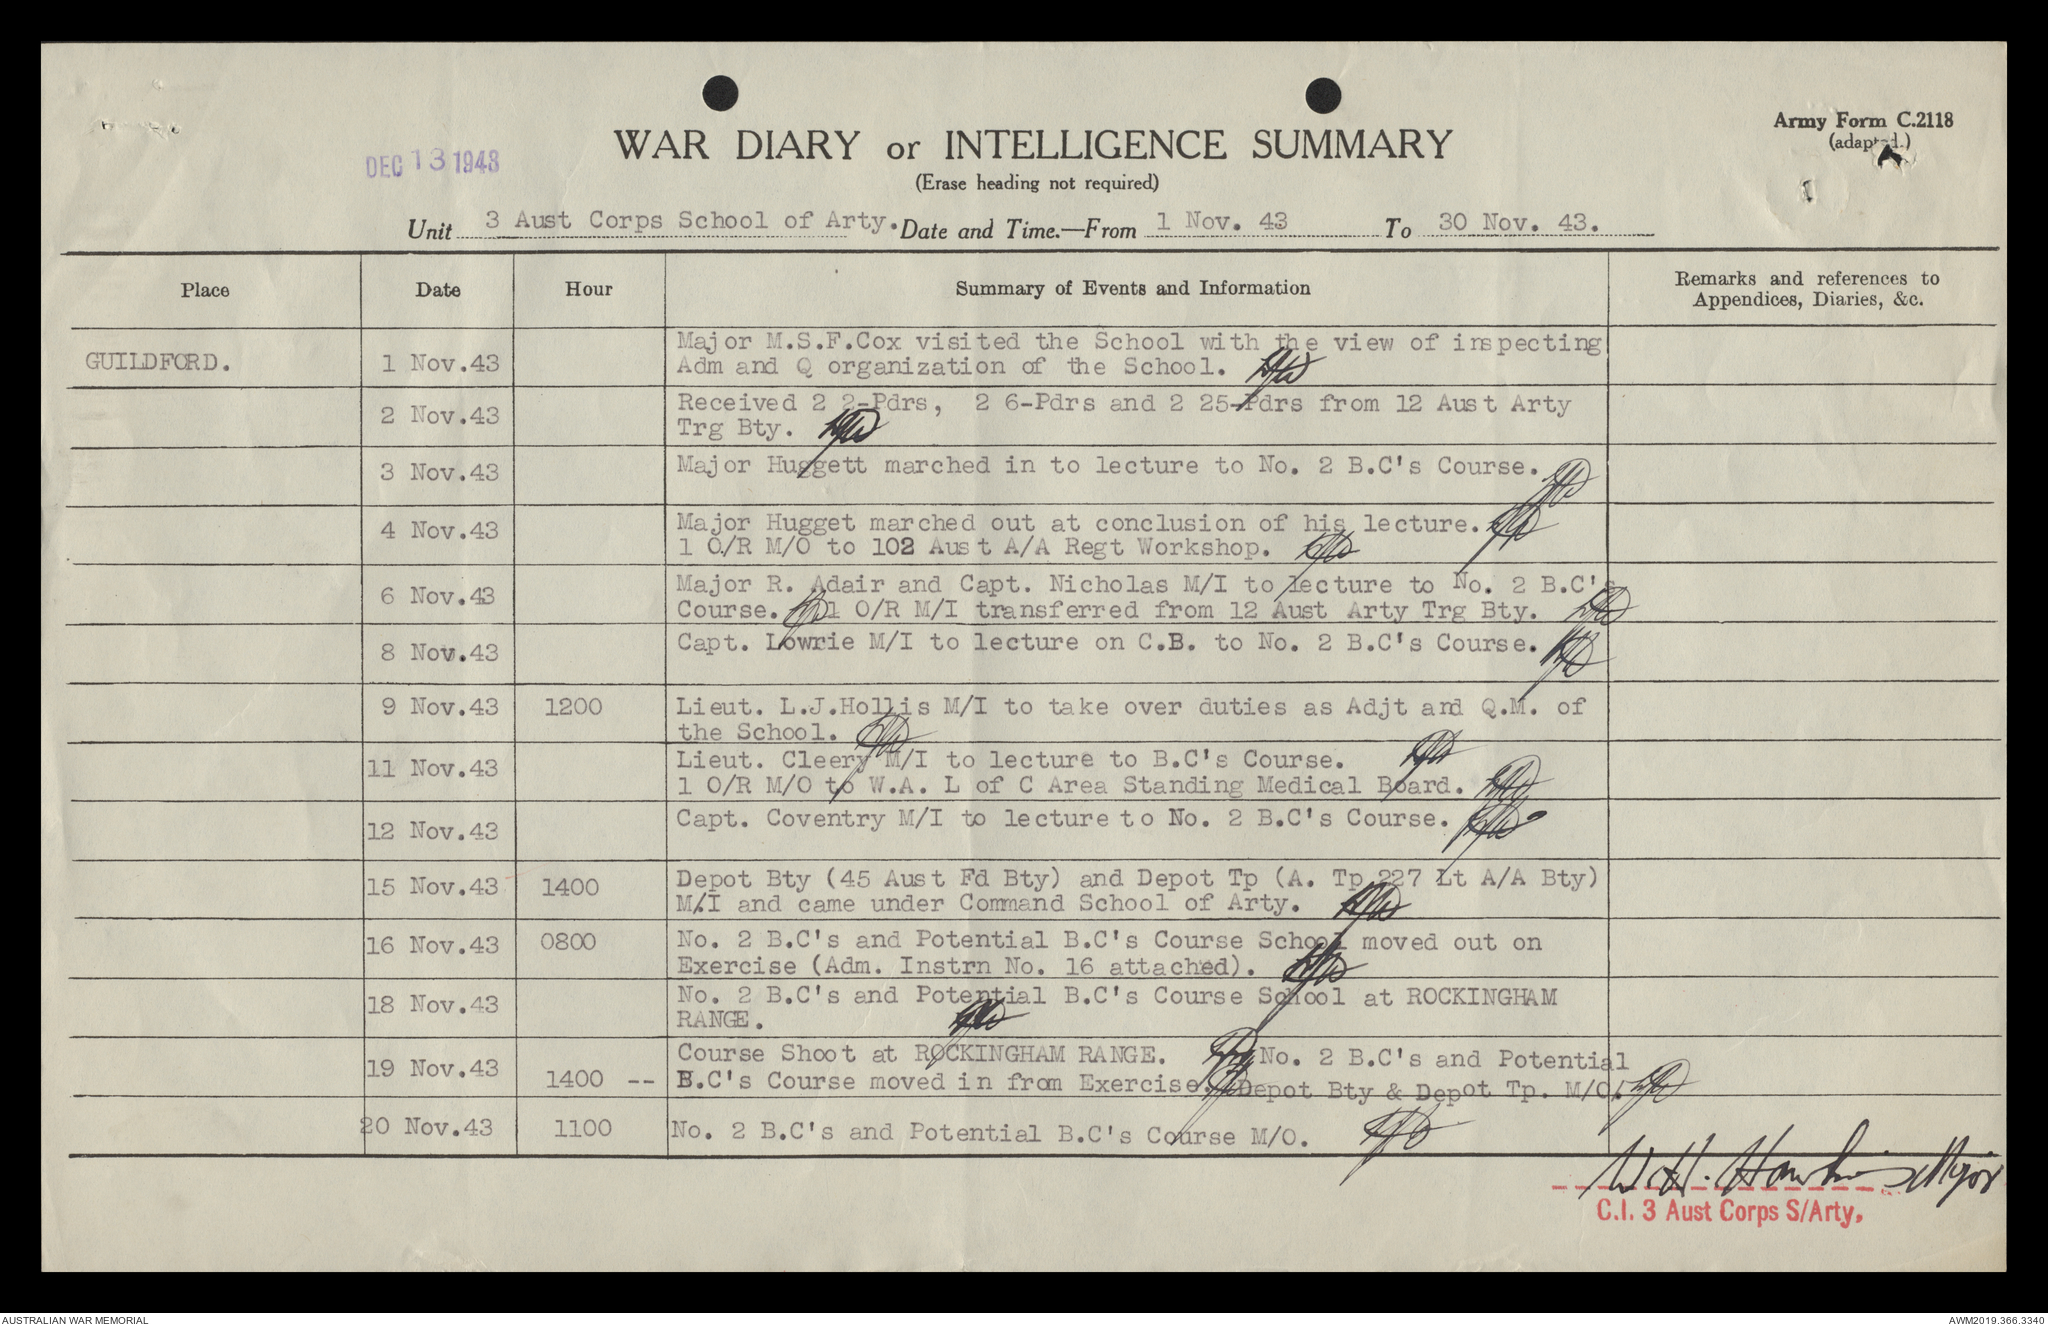 Army Form C.2118
(adapted.)
DEC 13 1943
WAR DIARY or INTELLIGENCE SUMMARY
(Erase heading not required)
Unit 3 Aust Corps School of Arty. Date and Time.—From 1 Nov. 43 To 30 Nov. 43.
Place Date Hour Summary of Events and Information Remarks and references to
Appendices, Diaries, &c.
GUILDFORD. 1 Nov.43 Major M.S.F.Cox visited the School with the view of inspecting
Adm and Q organization of the School.
2 Nov.43 Received 2 2-Pdrs, 2 6-Pdrs and 2 25-Pdrs from 12 Aust Arty
Trg Bty.
3 Nov.43 Major Huggett marched in to lecture to No. 2 B.C's Course.
4 Nov.43 Major Hugget marched out at conclusion of his lecture.
1 O/R M/O to 102 Aust A/A Regt Workshop.
6 Nov.43 Major R. Adair and Capt. Nicholas M/I to lecture to No. 2 B.C's
Course. 1 O/R M/I transferred from 12 Aust Arty Trg Bty.
8 Nov.43 Capt. Lowrie M/I to lecture on C.B. to No. 2 B.C's Course.
9 Nov.43 1200 Lieut. L.J.Hollis M/I to take over duties as Adjt and Q.M. of
the School.
11 Nov.43 Lieut. Cleery M/I to lecture to B.C's Course.
1 O/R M/O to W.A. L of C Area Standing Medical Board.
12 Nov.43 Capt. Coventry M/I to lecture to No. 2 B.C's Course.
15 Nov.43 1400 Depot Bty (45 Aust Fd Bty) and Depot Tp (A. Tp 227 Lt A/A Bty)
M/I and came under Command School of Arty.
16 Nov.43 0800 No. 2 B.C's and Potential B.C's Course School moved out on
Exercise (Adm. Instrn No. 16 attached).
18 Nov.43 No. 2 B.C's and Potential B.C's Course School at ROCKINGHAM
RANGE.
19 Nov.43 Course Shoot at ROCKINGHAM RANGE. No. 2 B.C's and Potential
1400 -- B.C's Course moved in from Exercise. Depot Bty & Depot Tp. M/O.
20 Nov.43 1100 No. 2 B.C's and Potential B.C's Course M/O.
W.H. Hawkins Major
C.I. 3 Aust Corps S/Arty,
AUSTRALIAN WAR MEMORIAL AWM2019.366.3340